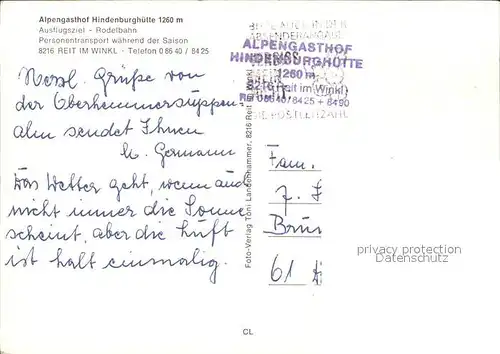 Alpengasthof Hindenburghütte 1260 m
Ausflugsziel - Rodelbahn
Personentransport während der Saison
8216 REIT IM WINKL - Telefon 0 86 40 / 84 25
Herzl. Grüße von
der
alm sendet Ihnen
Germann
Das Wetter geht, wenn auch
nicht immer die Sonne
scheint, aber die Luft
ist halt einmalig.
Foto-Verlag Toni Landenhammer, 8216 Reit im Winkl
ABSENDERANGABE
ALPENGASTHOF
HINDENBURGHÜTTE
1260 m
8216 Reit im Winkl
08640/8425 + 8490
DIE POSTLEITZAHL
Fam.
J.
Brun
61
privacy protection
Datenschutz
CL